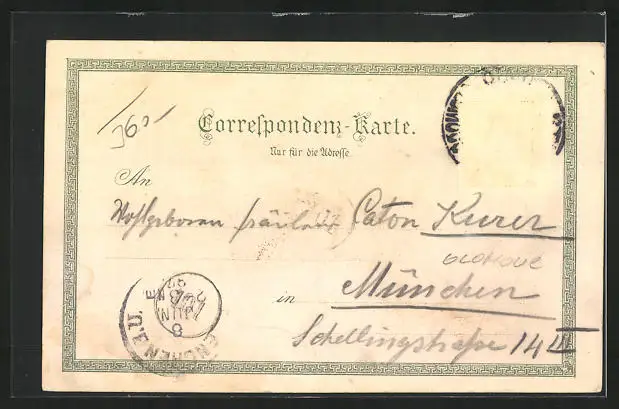 36.-
Correspondenz-Karte.
Nur für die Adresse
An
Wohlgeboren Fräulein Caton Kurer
OLOMOUC
in München
Schellingstraße 14 III
8
JUN